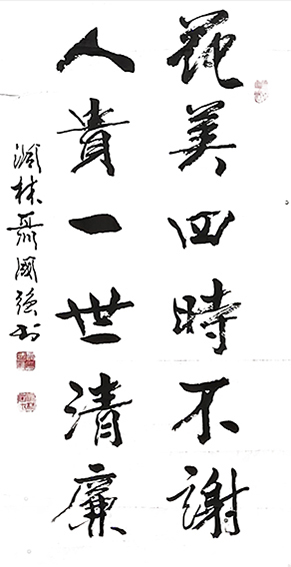 花美四時不謝
人貴一世清廉
聶國強書